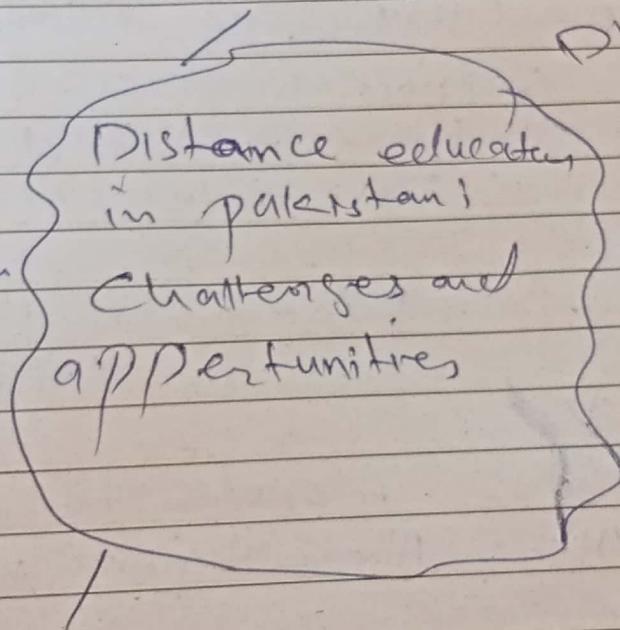 Distance education
in pakistan:
Challenges and
appertunities